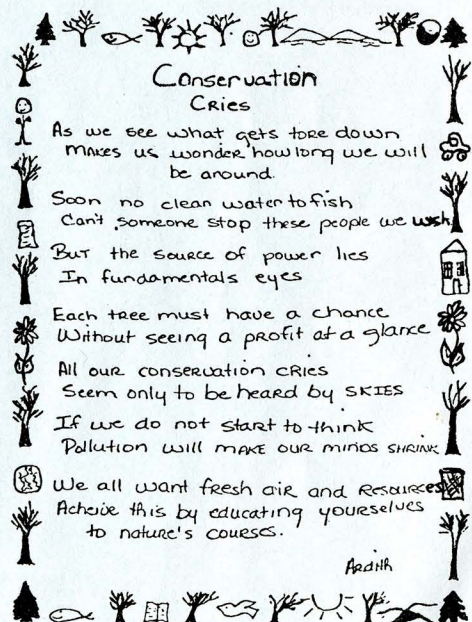 Conservation
Cries
As we see what gets tore down
makes us wonder how long we will
be around.
Soon no clean water to fish
Can't someone stop these people we wish
But the source of power lies
In fundamentals eyes
Each tree must have a chance
Without seeing a profit at a glance
All our conservation cries
Seem only to be heard by SKIES
If we do not start to think
Pollution will make our minds SHRINK
We all want fresh air and Resources
Acheive this by educating yourselves
to nature's courses.
Ardith